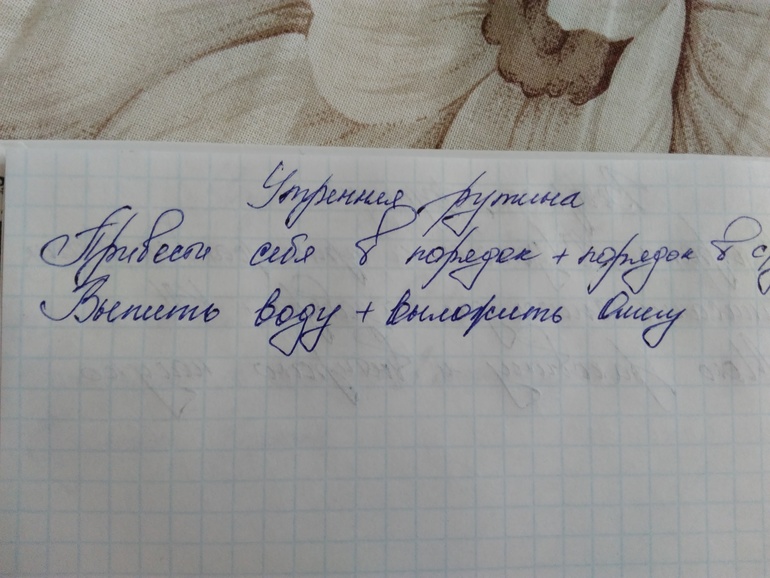 Утренняя рутина
Привести себя в порядок + порядок в
Выпить воду + выложить